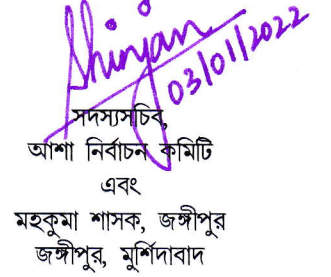 Shinjan
03/01/2022
সদস্যসচিব,
আশা নির্বাচন কমিটি
এবং
মহকুমা শাসক, জঙ্গীপুর
জঙ্গীপুর, মুর্শিদাবাদ